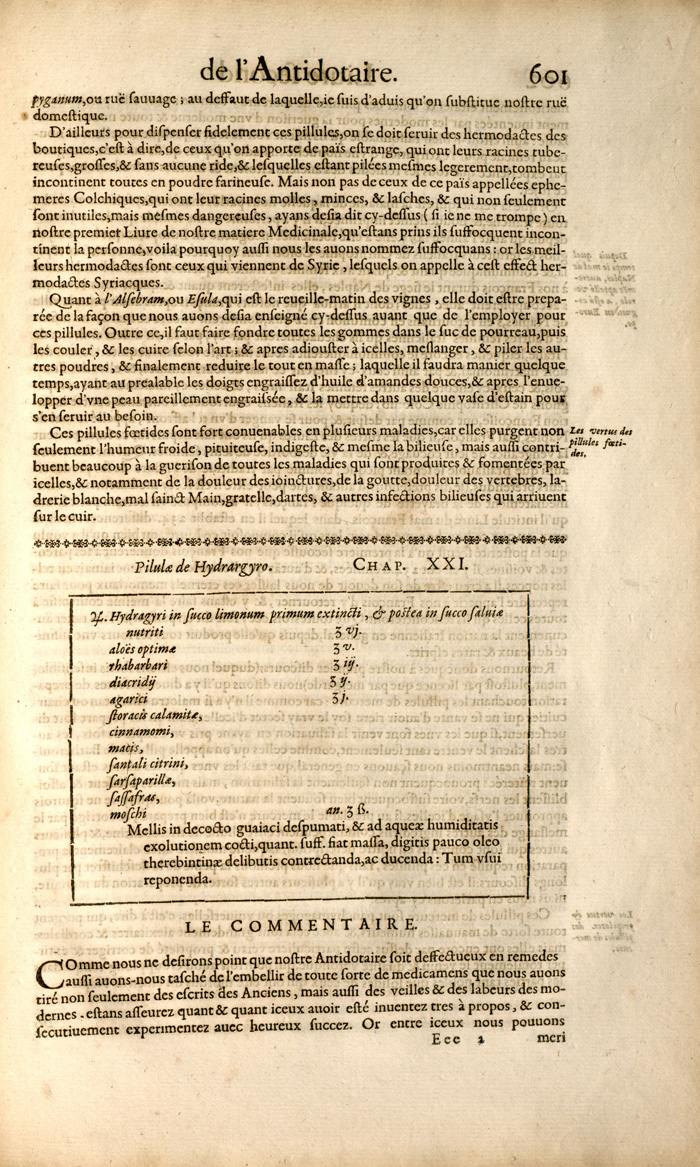 de l'Antidotaire. 601
pyganum, ou ruë sauuage ; au deffaut de laquelle, ie suis d'aduis qu'on substitue nostre ruë
domestique.
D'ailleurs pour dispenser fidelement ces pillules, on se doit seruir des hermodactes des
boutiques, c'est à dire, de ceux qu'on apporte de païs estrange, qui ont leurs racines tube-
reuses, grosses, & sans aucune ride, & lesquelles estant pilées mesmes legerement, tombent
incontinent toutes en poudre farineuse. Mais non pas de ceux de ce païs appellées ephe-
meres Colchiques, qui ont leur racines molles, minces, & lasches, & qui non seulement
sont inutiles, mais mesmes dangereuses, ayans desia dit cy-dessus ( si ie ne me trompe ) en
nostre premier Liure de nostre matiere Medicinale, qu'estans prins ils suffocquent incon-
tinent la personne, voila pourquoy aussi nous les auons nommez suffocquans : or les meil-
leurs hermodactes sont ceux qui viennent de Syrie, lesquels on appelle à cest effect her-
modactes Syriacques.
Quant à l'Alsebram, ou Esula, qui est le reueille-matin des vignes, elle doit estre prepa-
rée de la façon que nous auons desia enseigné cy-dessus auant que de l'employer pour
ces pillules. Outre ce, il faut faire fondre toutes les gommes dans le suc de pourreau, puis
les couler, & les cuire selon l'art ; & apres adiouster à icelles, meslanger, & piler les au-
tres poudres, & finalement reduire le tout en masse ; laquelle il faudra manier quelque
temps, ayant au prealable les doigts engraissez d'huile d'amandes douces, & apres l'enue-
lopper d'vne peau pareillement engraissée, & la mettre dans quelque vase d'estain pour
s'en seruir au besoin.
Ces pillules fœtides sont fort conuenables en plusieurs maladies, car elles purgent non
seulement l'humeur froide, pituiteuse, indigeste, & mesme la bilieuse, mais aussi contri-
buent beaucoup à la guerison de toutes les maladies qui sont produites & fomentées par
icelles, & notamment de la douleur des ioinctures, de la goutte, douleur des vertebres, la-
drerie blanche, mal sainct Main, gratelle, dartes, & autres infections bilieuses qui arriuent
sur le cuir.
Les vertus des
pillules fœti-
des.
Pilulæ de Hydrargyro. CHAP. XXI.
♃. Hydragyri in succo limonum primum extincti, & postea in succo saluiæ
nutriti ʒ vj.
aloës optimæ ʒ v.
rhabarbari ʒ iij.
diacridij ʒ ij.
agarici ʒ j.
storacis calamitæ,
cinnamomi,
macis,
santali citrini,
sarsaparillæ,
sassafras,
moschi an. ʒ ß.
Mellis in decocto guaiaci despumati, & ad aqueæ humiditatis
exolutionem cocti, quant. suff. fiat massa, digitis pauco oleo
therebintinæ delibutis contrectanda, ac ducenda : Tum vsui
reponenda.
LE COMMENTAIRE.
COmme nous ne desirons point que nostre Antidotaire soit deffectueux en remedes
aussi auons-nous tasché de l'embellir de toute sorte de medicamens que nous auons
tiré non seulement des escrits des Anciens, mais aussi des veilles & des labeurs des mo-
dernes, estans asseurez quant & quant iceux auoir esté inuentez tres à propos, & con-
secutiuement experimentez auec heureux succez. Or entre iceux nous pouuons
Eee 2 meri